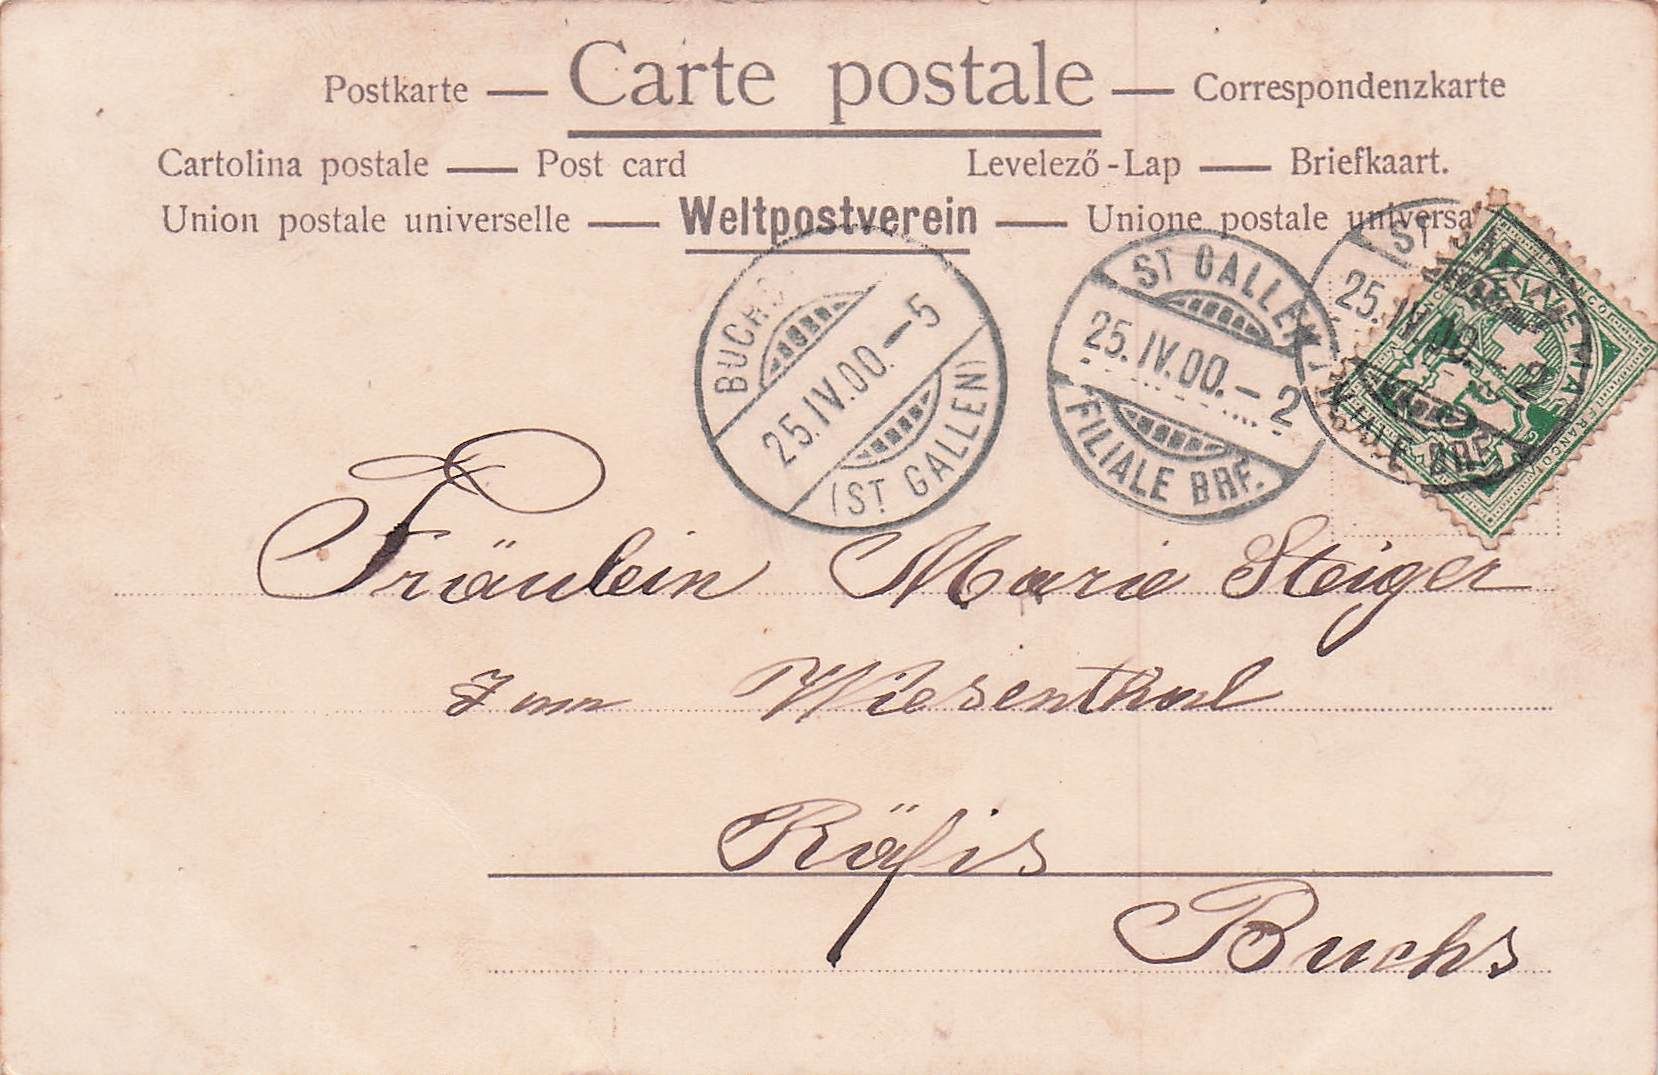 Postkarte — Carte postale — Correspondenzkarte
Cartolina postale — Post card Levelező-Lap — Briefkaart.
Union postale universelle — Weltpostverein — Unione postale universa
BUCHS
25.IV.00.–5
(ST GALLEN)
ST GALLEN
25.IV.00.–2
FILIALE BRF.
ST GALLEN
25.IV.00.–2
FILIALE BRF.
HELVETIA
FRANCO
Fräulein Marie Steiger
zum Wiesenthal
Räfis
Buchs